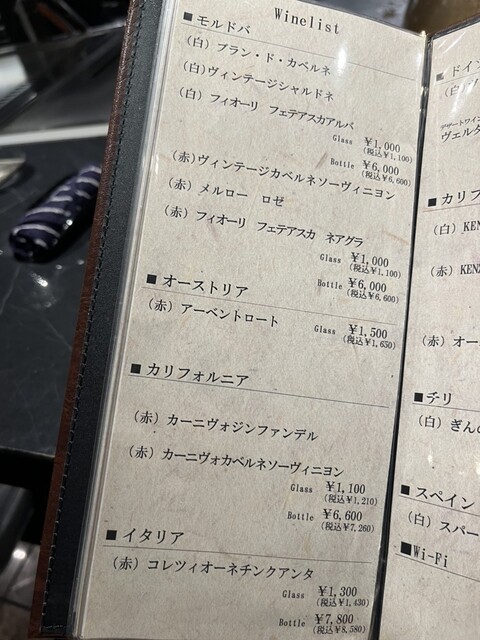 Winelist
■ モルドバ
(白) ブラン・ド・カベルネ
(白)ヴィンテージシャルドネ
(白) フィオーリ　フェテアスカアルバ
Glass ¥1,000
(税込¥1,100)
Bottle ¥6,000
(税込¥6,600)
(赤)ヴィンテージカベルネソーヴィニヨン
(赤) メルロー　ロゼ
(赤) フィオーリ　フェテアスカ　ネアグラ
Glass ¥1,000
(税込¥1,100)
Bottle ¥6,000
(税込¥6,600)
■ オーストリア
(赤) アーベントロート
Glass ¥1,500
(税込¥1,650)
■ カリフォルニア
(赤) カーニヴォジンファンデル
(赤) カーニヴォカベルネソーヴィニヨン
Glass ¥1,100
(税込¥1,210)
Bottle ¥6,600
(税込¥7,260)
■ イタリア
(赤) コレツィオーネチンクアンタ
Glass ¥1,300
(税込¥1,430)
Bottle ¥7,800
(税込¥8,580)
■ ドイ
(白)
デザートワイン
ヴェルタ
■ カリフ
(白) KEN
(赤) KENZ
(赤) オー
■チリ
(白) ぎんの
■ スペイン
(白) スパー
■Wi-Fi